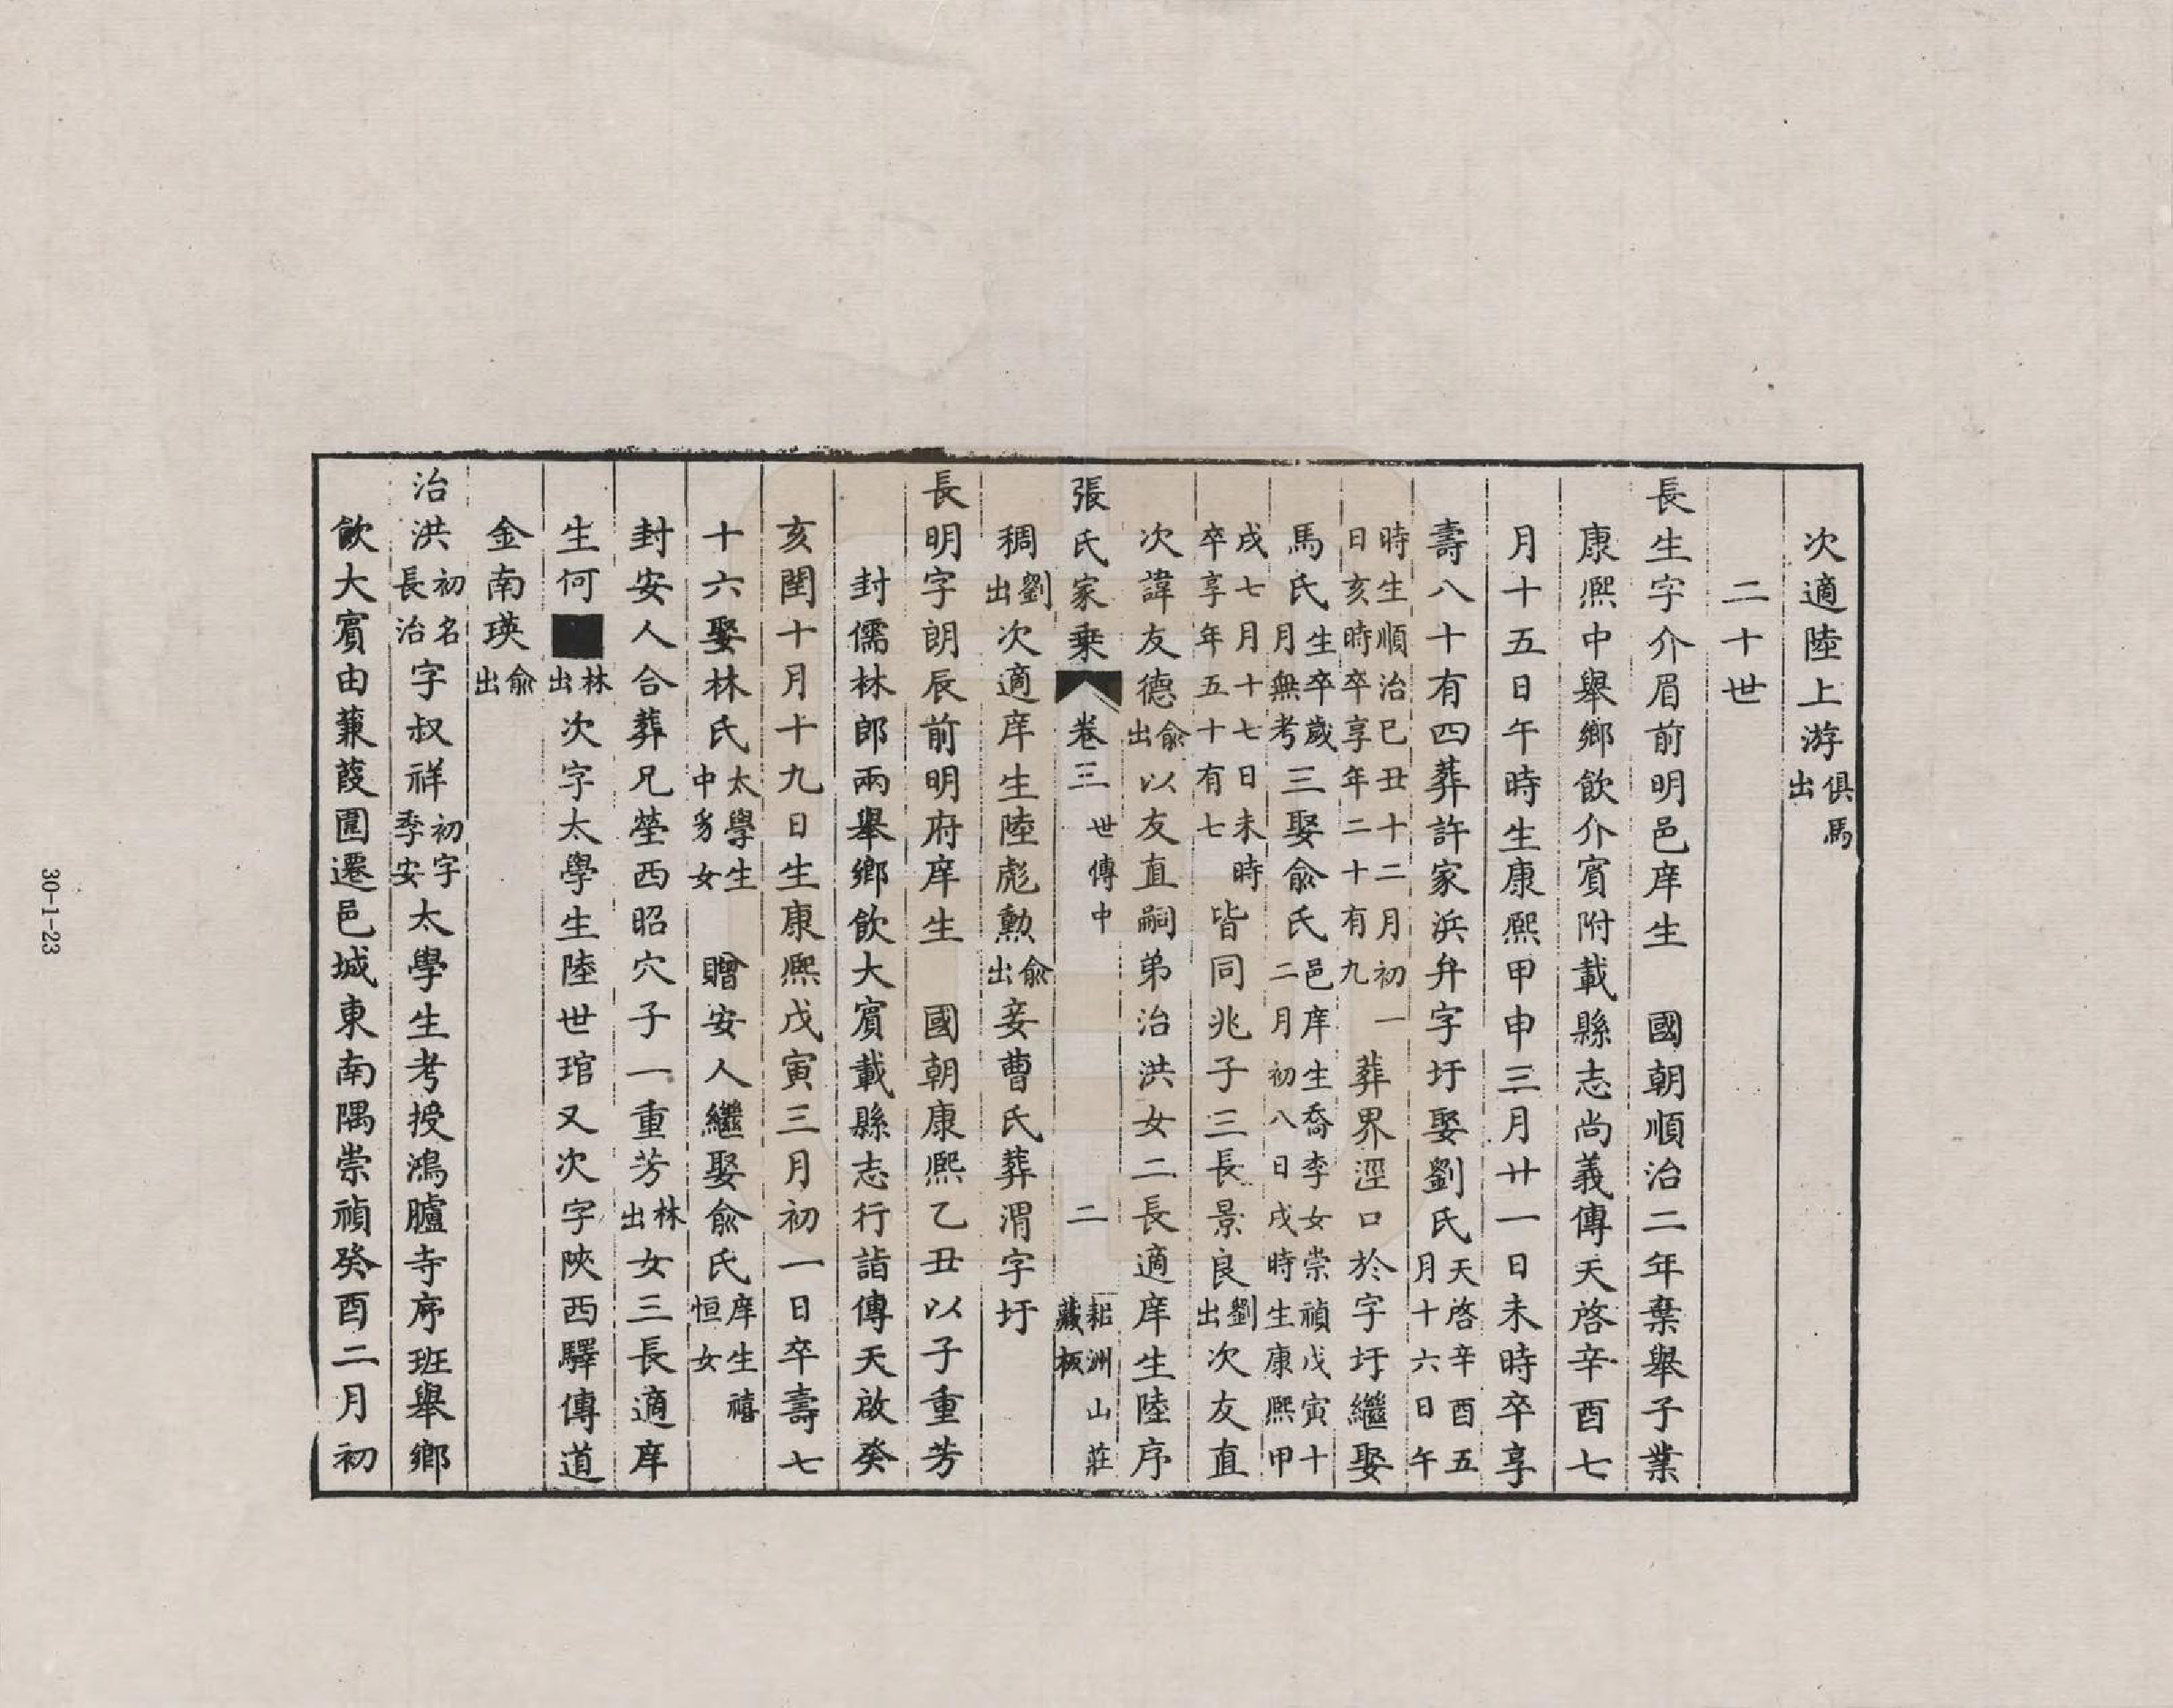 次適陸上游俱馬出
二十世
長生字介眉前明邑庠生　國朝順治二年棄舉子業
康熙中舉鄉飲介賓附載縣志尚義傳天啓辛酉七
月十五日午時生康熙甲申三月廿一日未時卒享
壽八十有四葬許家浜弁字圩娶劉氏天啓辛酉五月十六日午
時生順治已丑十二月初一日亥時卒享年二十有九葬界涇口於字圩繼娶
馬氏生卒歲月無考三娶俞氏邑庠生喬李女崇禎戊寅十二月初八日戌時生康熙甲
戌七月十七日未時卒享年五十有七皆同兆子三長景良劉出次友直
次諱友德俞出以友直嗣弟治洪女二長適庠生陸序
張氏家乘　卷三　世傳中　二　洲山莊藏板
稠劉出次適庠生陸彪勲俞出妾曹氏葬渭字圩
長明字朗辰前明府庠生　國朝康熙乙丑以子重芳
封儒林郎兩舉鄉飲大賓載縣志行詣傳天啟癸
亥閏十月十九日生康熙戊寅三月初一日卒壽七
十六娶林氏太學生中豸女　贈安人繼娶俞氏庠生禧恒女
封安人合葬兄塋西昭穴子一重芳林出女三長適庠
生何■林出次字太學生陸世琯又次字陝西驛傳道
金南瑛俞出
治洪初名長治字叔祥初字季安太學生考授鴻臚寺序班舉鄉
飲大賓由蒹葭圍遷邑城東南隅崇禎癸酉二月初
30-1-23